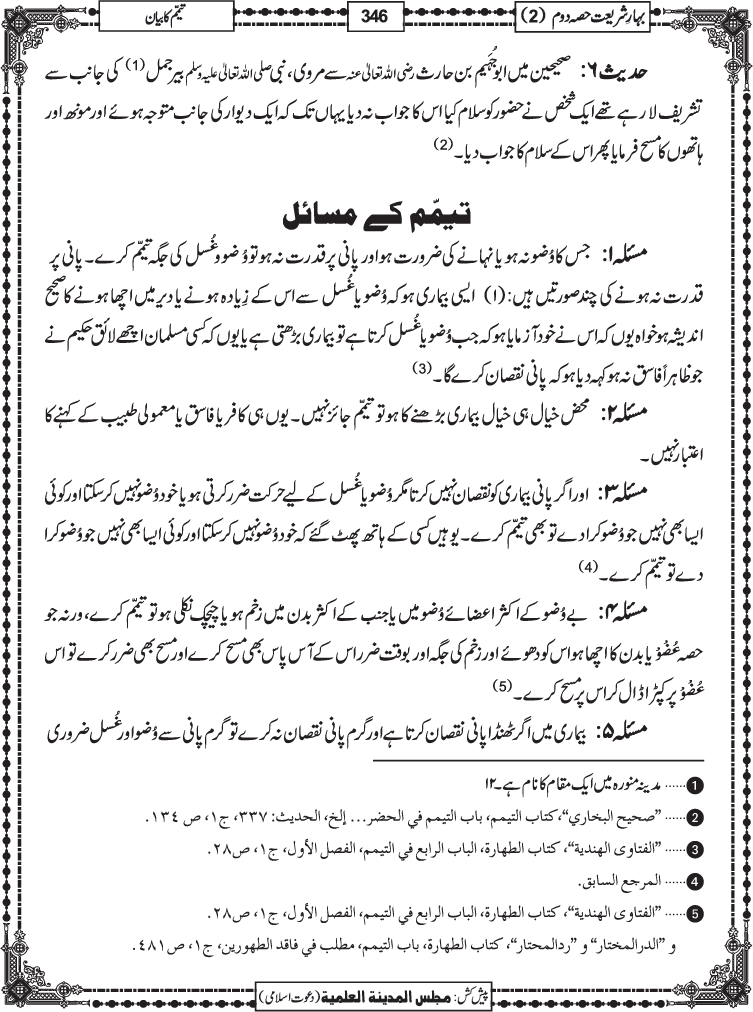 بہارِ شریعت حصہ دوم (2)
346
تیمّم کا بیان
حدیث ۶: صحیحین میں ابو جُہَیم بن حارث رضی اللہ تعالیٰ عنہ سے مروی، نبی صلی اللہ تعالیٰ علیہ وسلم بیرِ جمل (1) کی جانب سے
تشریف لا رہے تھے ایک شخص نے حضور کو سلام کیا اس کا جواب نہ دیا یہاں تک کہ ایک دیوار کی جانب متوجہ ہوئے اور مونھ اور
ہاتھوں کا مسح فرمایا پھر اس کے سلام کا جواب دیا۔ (2)
تیمّم کے مسائل
مسئلہ ۱: جس کا وُضو نہ ہو یا نہانے کی ضرورت ہو اور پانی پر قدرت نہ ہو تو وُضو و غُسل کی جگہ تیمّم کرے۔ پانی پر
قدرت نہ ہونے کی چند صورتیں ہیں: (۱) ایسی بیماری ہو کہ وُضو یا غُسل سے اس کے زِیادہ ہونے یا دیر میں اچھا ہونے کا صحیح
اندیشہ ہو خواہ یوں کہ اس نے خود آزمایا ہو کہ جب وُضو یا غُسل کرتا ہے تو بیماری بڑھتی ہے یا یوں کہ کسی مسلمان اچھے لائق حکیم نے
جو ظاہراً فاسق نہ ہو کہہ دیا ہو کہ پانی نقصان کرے گا۔ (3)
مسئلہ ۲: محض خیال ہی خیال بیماری بڑھنے کا ہو تو تیمّم جائز نہیں۔ یوں ہی کافر یا فاسق یا معمولی طبیب کے کہنے کا
اعتبار نہیں۔
مسئلہ ۳: اور اگر پانی بیماری کو نقصان نہیں کرتا مگر وُضو یا غُسل کے لیے حرکت ضرر کرتی ہو یا خود وُضو نہیں کر سکتا اور کوئی
ایسا بھی نہیں جو وُضو کرا دے تو بھی تیمّم کرے۔ یوہیں کسی کے ہاتھ پھٹ گئے کہ خود وُضو نہیں کر سکتا اور کوئی ایسا بھی نہیں جو وُضو کرا
دے تو تیمّم کرے۔ (4)
مسئلہ ۴: بے وُضو کے اکثر اعضائے وُضو میں یا جنب کے اکثر بدن میں زخم ہو یا چیچک نکلی ہو تو تیمّم کرے، ورنہ جو
حصہ عُضْوْ یا بدن کا اچھا ہو اس کو دھوئے اور زخم کی جگہ اور بوقت ضرر اس کے آس پاس بھی مسح کرے اور مسح بھی ضرر کرے تو اس
عُضْوْ پر کپڑا ڈال کر اس پر مسح کرے۔ (5)
مسئلہ ۵: بیماری میں اگر ٹھنڈا پانی نقصان کرتا ہے اور گرم پانی نقصان نہ کرے تو گرم پانی سے وُضو اور غُسل ضروری
1 ...... مدینہ منورہ میں ایک مقام کا نام ہے۔ ۱۲
2 ...... "صحيح البخاري"، كتاب التيمم، باب التيمم في الحضر... إلخ، الحديث: ٣٣٧، ج١، ص ١٣٤.
3 ...... "الفتاوى الهندية"، كتاب الطهارة، الباب الرابع في التيمم، الفصل الأول، ج١، ص٢٨.
4 ...... المرجع السابق.
5 ...... "الفتاوى الهندية"، كتاب الطهارة، الباب الرابع في التيمم، الفصل الأول، ج١، ص٢٨.
و "الدرالمختار" و "ردالمحتار"، كتاب الطهارة، باب التيمم، مطلب في فاقد الطهورين، ج١، ص٤٨١.
پیش کش: مجلس المدینة العلمیة (دعوتِ اسلامی)